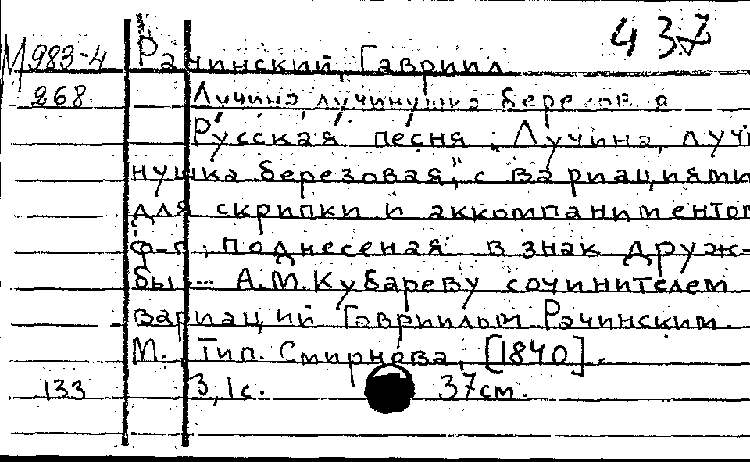 437
М 983-4 Рачинский, Гавриил
268 Лучина, лучинушка березовая
Русская песня "Лучина, лучи
нушка березовая", с вариациями
для скрипки и аккомпаниментом
ф-п, поднесеная в знак друж-
бы... А.М. Кубареву сочинителем
вариаций Гавриилом Рачинским.
М., Тип. Смирнова, [1840].
133 3, 1 с. 37 см.